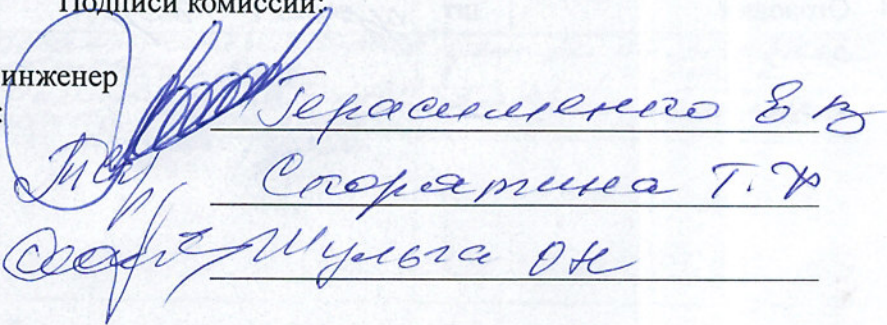 Подписи комиссии:
инженер
Герасименко Е В
Скорятина Т.
Шульга ОН